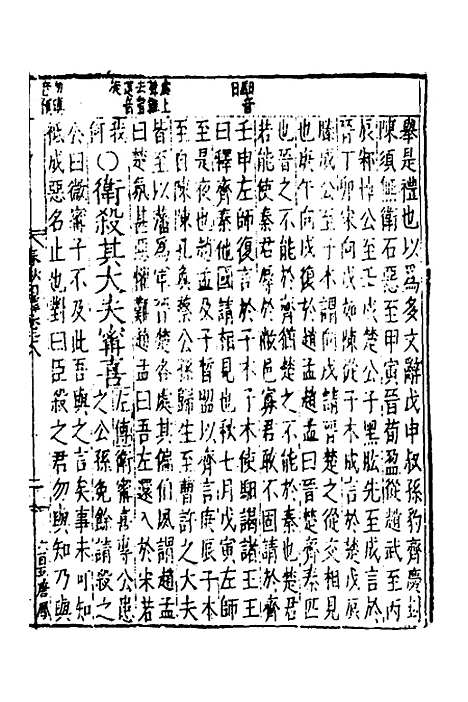 舉是禮也以爲多文辭戊申叔孫豹齊慶封
陳須無衛石惡至甲寅晉荀盈從趙武至丙
辰邾悼公至壬戌楚公子黑肱先至成言於
晉丁卯宋向戌如陳從子木成言於楚戊辰
滕成公至子木謂向戌請晉楚之從交相見
也庚午向戌復於趙孟趙孟曰晉楚齊秦匹
也晉之不能於齊猶楚之不能於秦也楚君
若能使秦君辱於敝邑寡君敢不固請於齊
壬申左師復言於子木子木使馹謁諸王王
曰釋齊秦他國請相見也秋七月戊寅左師
至是夜也趙孟及子晳盟以齊言庚辰子木
至自陳陳孔奐蔡公孫歸生至曹許之大夫
皆至以藩爲軍晉楚各處其偏伯夙謂趙孟
曰楚氛甚惡懼難趙孟曰吾左還入於宋若
我何
○衛殺其大夫甯喜
左傳衛甯喜專公患
之公孫免餘請殺之
公曰微甯子不及此吾與之言矣事未可知
祇成惡名止也對曰臣殺之君勿與知乃與
馹音
日